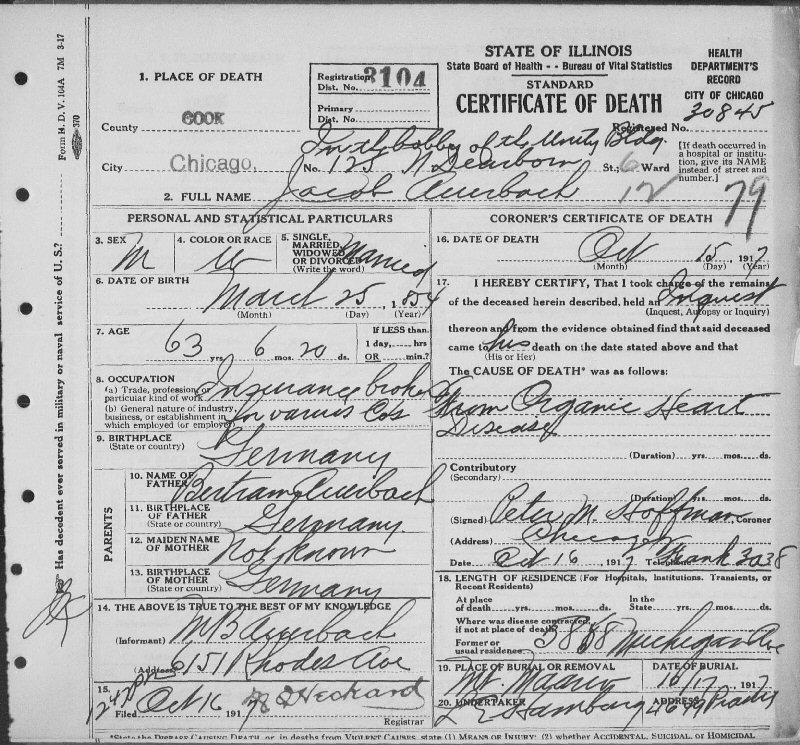 STATE OF ILLINOIS
State Board of Health - - Bureau of Vital Statistics
STANDARD
CERTIFICATE OF DEATH
HEALTH
DEPARTMENT'S
RECORD
CITY OF CHICAGO
Registered No. 30845
Form H. D. V. 164A 7M 3-17
370
Has decedent ever served in military or naval service of U. S.?
1. PLACE OF DEATH
Registration
Dist. No. 3104
Primary
Dist. No.
County COOK
In the Lobby of the Unity Bldg.
City Chicago, No. 125 N Dearborn St.; 6 Ward
[If death occurred in a hospital or institution, give its NAME instead of street and number.]
12 79
2. FULL NAME Jacob Auerbach
PERSONAL AND STATISTICAL PARTICULARS
3. SEX M
4. COLOR OR RACE W
5. SINGLE, MARRIED, WIDOWED OR DIVORCED (Write the word) Married
6. DATE OF BIRTH
March 25, 1854
(Month) (Day) (Year)
7. AGE
63 yrs 6 mos. 20 ds.
If LESS than
1 day, hrs
OR min.?
8. OCCUPATION
(a) Trade, profession or particular kind of work Insurance broker
(b) General nature of industry, business, or establishment in which employed (or employer) for various Cos
9. BIRTHPLACE
(State or country) Germany
PARENTS
10. NAME OF FATHER Bertram Auerbach
11. BIRTHPLACE OF FATHER (State or country) Germany.
12. MAIDEN NAME OF MOTHER Not known
13. BIRTHPLACE OF MOTHER (State or country) Germany
14. THE ABOVE IS TRUE TO THE BEST OF MY KNOWLEDGE
(Informant) M B Auerbach
(Address) 6151 Rhodes Ave
15.
Filed Oct 16 1917
Registrar
CORONER'S CERTIFICATE OF DEATH
16. DATE OF DEATH Oct 15 1917
(Month) (Day) (Year)
17. I HEREBY CERTIFY, That I took charge of the remains
of the deceased herein described, held an Inquest
(Inquest, Autopsy or Inquiry)
thereon and from the evidence obtained find that said deceased
came to his death on the date stated above and that
(His or Her)
The CAUSE OF DEATH* was as follows:
From Organic Heart
Disease
(Duration) yrs. mos. ds.
Contributory
(Secondary)
(Duration) yrs. mos. ds.
(Signed) Peter M. Hoffman, Coroner
(Address) Chicago
Date Oct 16, 1917 Telephone Frank 3038
18. LENGTH OF RESIDENCE (For Hospitals, Institutions, Transients, or Recent Residents)
At place of death yrs. mos. ds. In the State yrs. mos. ds.
Where was disease contracted, if not at place of death?
Former or usual residence Michigan Ave
19. PLACE OF BURIAL OR REMOVAL
DATE OF BURIAL
10/17, 1917
20. UNDERTAKER
ADDRESS
*State the DISEASE CAUSING DEATH, or, in deaths from VIOLENT CAUSES, state (1) MEANS OF INJURY; (2) whether ACCIDENTAL, SUICIDAL, or HOMICIDAL